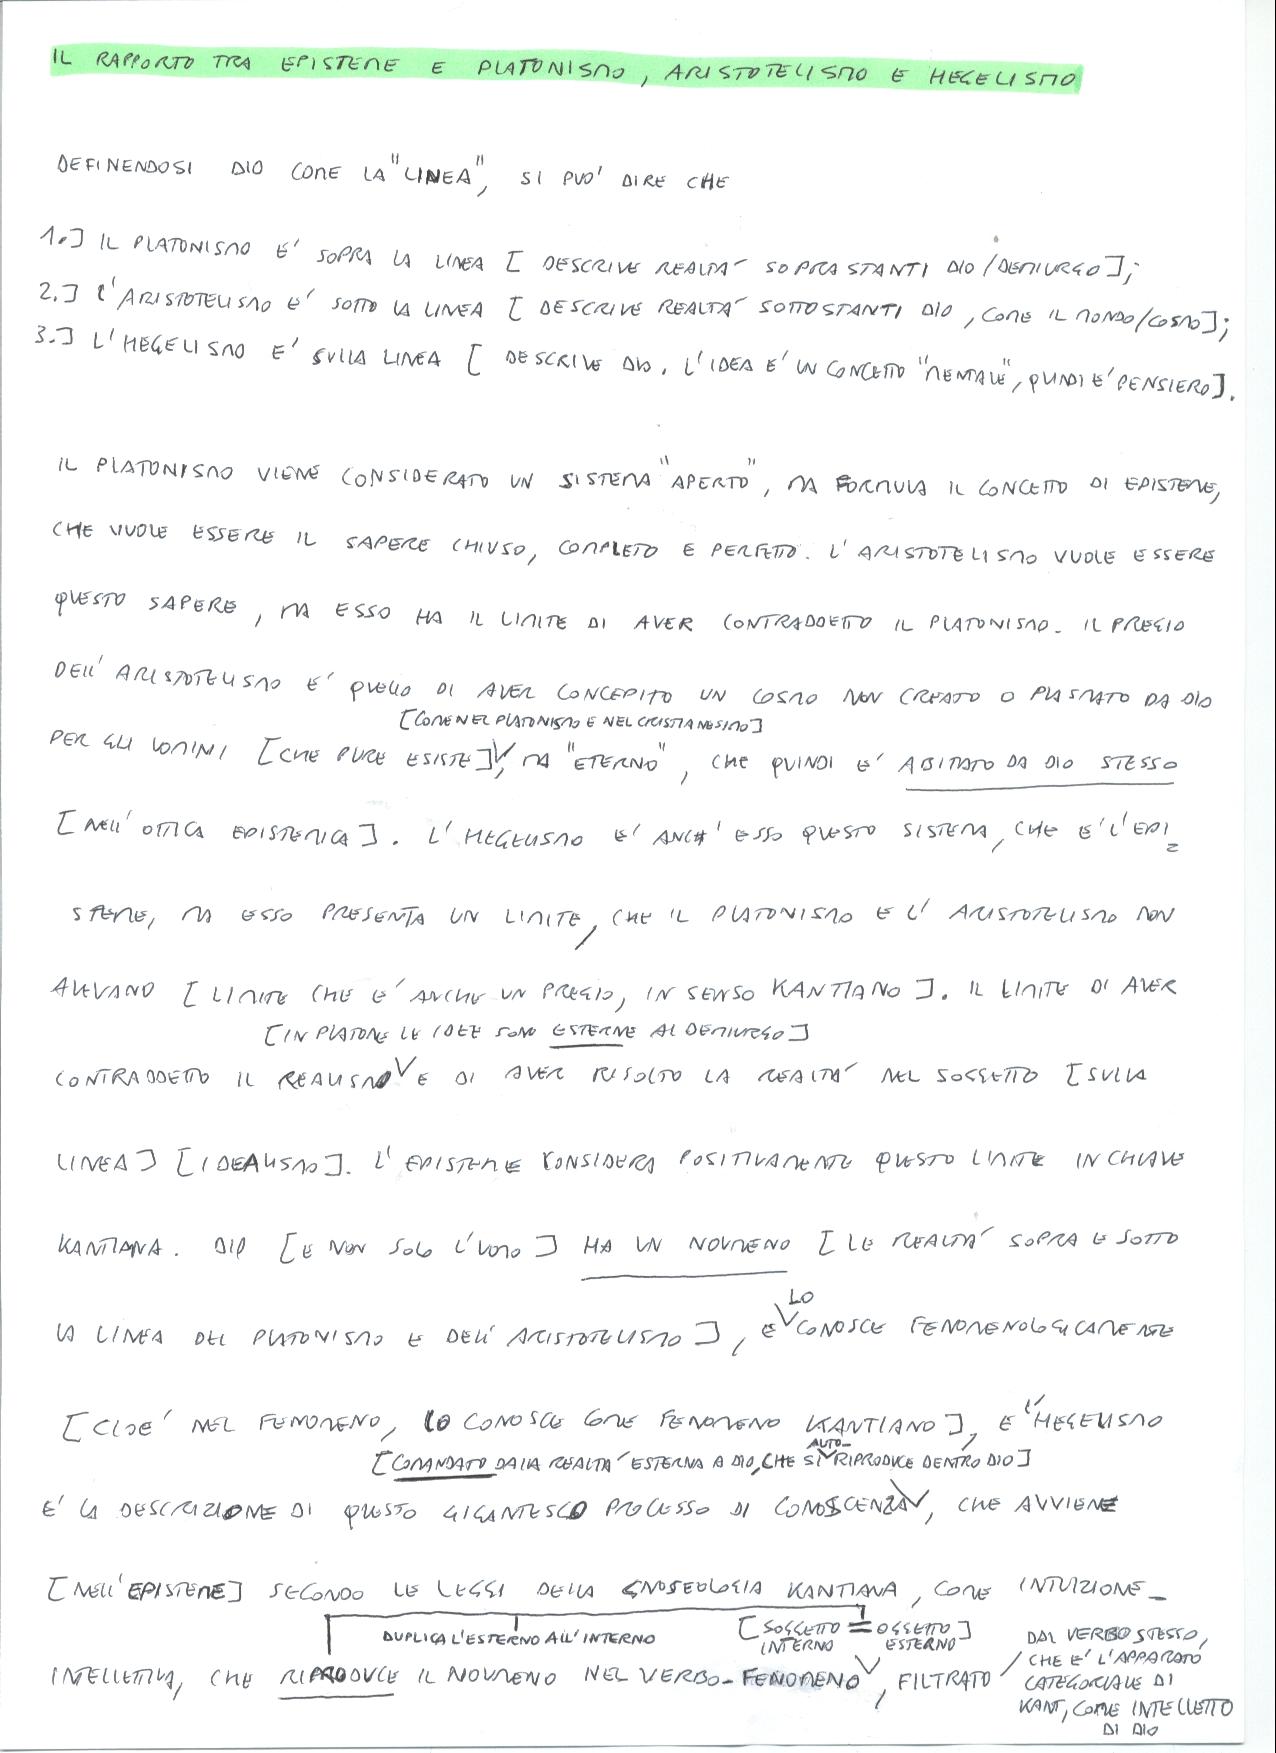 IL RAPPORTO TRA EPISTEME E PLATONISMO, ARISTOTELISMO E HEGELISMO
DEFINENDOSI DIO COME LA "LINEA", SI PUO' DIRE CHE
1.] IL PLATONISMO E' SOPRA LA LINEA [DESCRIVE REALTA' SOPRASTANTI DIO/DEMIURGO];
2.] L'ARISTOTELISMO E' SOTTO LA LINEA [DESCRIVE REALTA' SOTTOSTANTI DIO, COME IL MONDO/COSMO];
3.] L'HEGELISMO E' SULLA LINEA [DESCRIVE DIO. L'IDEA E' UN CONCETTO "MENTALE", QUINDI E' PENSIERO].
IL PLATONISMO VIENE CONSIDERATO UN SISTEMA "APERTO", MA FORMULA IL CONCETTO DI EPISTEME,
CHE VUOLE ESSERE IL SAPERE CHIUSO, COMPLETO E PERFETTO. L'ARISTOTELISMO VUOLE ESSERE
QUESTO SAPERE, MA ESSO HA IL LIMITE DI AVER CONTRADDETTO IL PLATONISMO. IL PREGIO
DELL'ARISTOTELISMO E' QUELLO DI AVER CONCEPITO UN COSMO NON CREATO O PLASMATO DA DIO
[COME NEL PLATONISMO E NEL CRISTIANESIMO]
PER GLI UOMINI [CHE PURE ESISTE], MA "ETERNO", CHE QUINDI E' ABITATO DA DIO STESSO
[NELL'OTTICA EPISTEMICA]. L'HEGELISMO E' ANCH'ESSO QUESTO SISTEMA, CHE E' L'EPI=
STEME, MA ESSO PRESENTA UN LIMITE, CHE IL PLATONISMO E L'ARISTOTELISMO NON
AVEVANO [LIMITE CHE E' ANCHE UN PREGIO, IN SENSO KANTIANO]. IL LIMITE DI AVER
[IN PLATONE LE IDEE SONO ESTERNE AL DEMIURGO]
CONTRADDETTO IL REALISMO E DI AVER RISOLTO LA REALTA' NEL SOGGETTO [SULLA
LINEA] [IDEALISMO]. L'EPISTEME CONSIDERA POSITIVAMENTE QUESTO LIMITE IN CHIAVE
KANTIANA. DIO [E NON SOLO L'UOMO] HA UN NOUMENO [LE REALTA' SOPRA E SOTTO
LA LINEA DEL PLATONISMO E DELL'ARISTOTELISMO], E LO CONOSCE FENOMENOLOGICAMENTE
[CIOE' NEL FENOMENO, LO CONOSCE COME FENOMENO KANTIANO], E L'HEGELISMO
[COMANDATO DALLA REALTA' ESTERNA A DIO, CHE SI AUTO-RIPRODUCE DENTRO DIO]
E' LA DESCRIZIONE DI QUESTO GIGANTESCO PROCESSO DI CONOSCENZA, CHE AVVIENE
[NELL'EPISTEME] SECONDO LE LEGGI DELLA GNOSEOLOGIA KANTIANA, COME INTUIZIONE-
DUPLICA L'ESTERNO ALL'INTERNO [SOGGETTO INTERNO = OGGETTO ESTERNO]
INTELLETTIVA, CHE RIPRODUCE IL NOUMENO NEL VERBO-FENOMENO, FILTRATO
DAL VERBO STESSO,
CHE E' L'APPARATO
CATEGORIALE DI
KANT, COME INTELLETTO
DI DIO